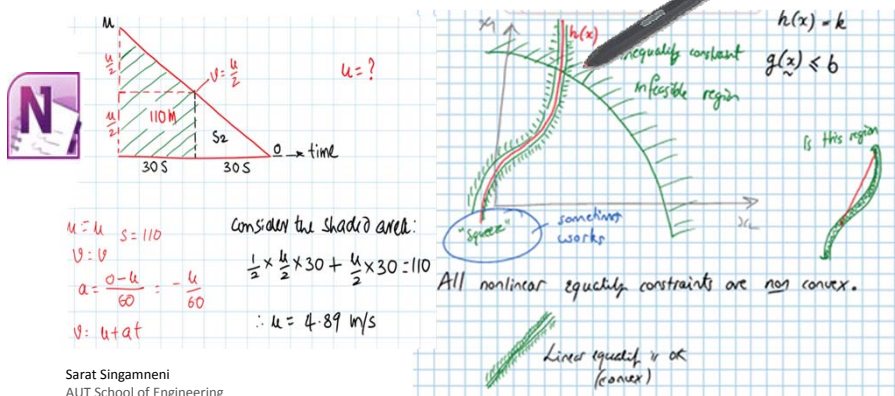 u
u/2
u/2
v = u/2
u = ?
110M
S2
0 → time
30S
30S
u = u
S = 110
v = v
a = (0-u)/60 = -u/60
v = u+at
Consider the shaded area:
1/2 × u/2 × 30 + u/2 × 30 = 110
∴ u = 4.89 m/s
Sarat Singamneni
AUT School of Engineering
N
h(x)
inequality constraint
infeasible region
h(x) = k
g(x) ≤ b
Is this region
"squeeze"
sometimes
works
All nonlinear equality constraints are non convex.
Linear equality is ok
(convex)